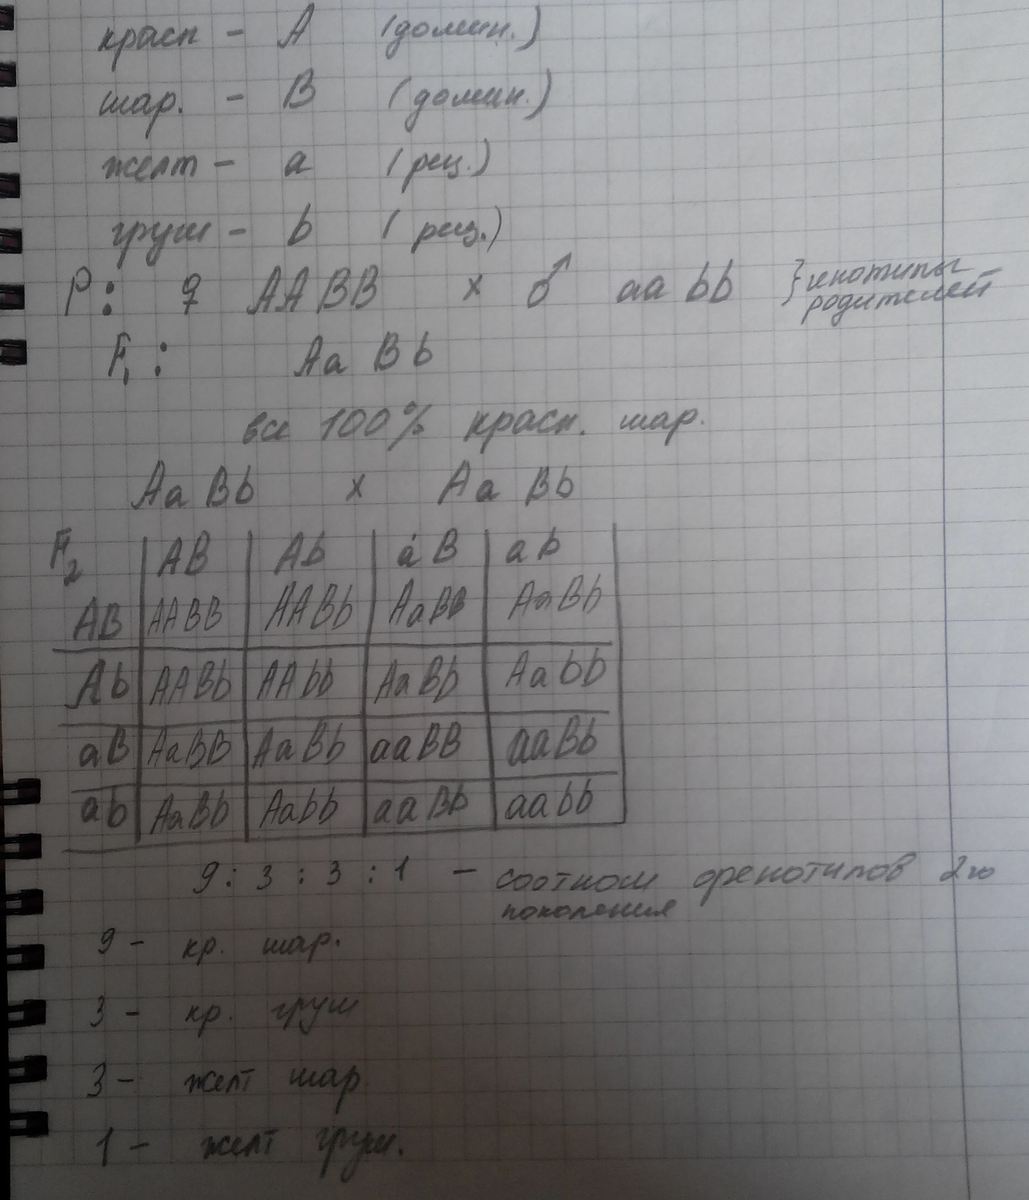 красн - А (домин.)
шар. - В (домин.)
желт - а (рец.)
груш - b (рец.)
Р: ♀ AABB x ♂ aabb } генотипы
родителей
F₁: Aa Bb
все 100% красн. шар.
AaBb x Aa Bb
F₂ | AB | Ab | aB | ab
AB | AABB | AABb | AaBB | AaBb
Ab | AABb | AAbb | AaBb | Aabb
aB | AaBB | AaBb | aaBB | aaBb
ab | AaBb | Aabb | aaBb | aabb
9 : 3 : 3 : 1 - соотнош фенотипов 2го
поколения
9 - кр. шар.
3 - кр. груш
3 - желт шар
1 - желт груш.